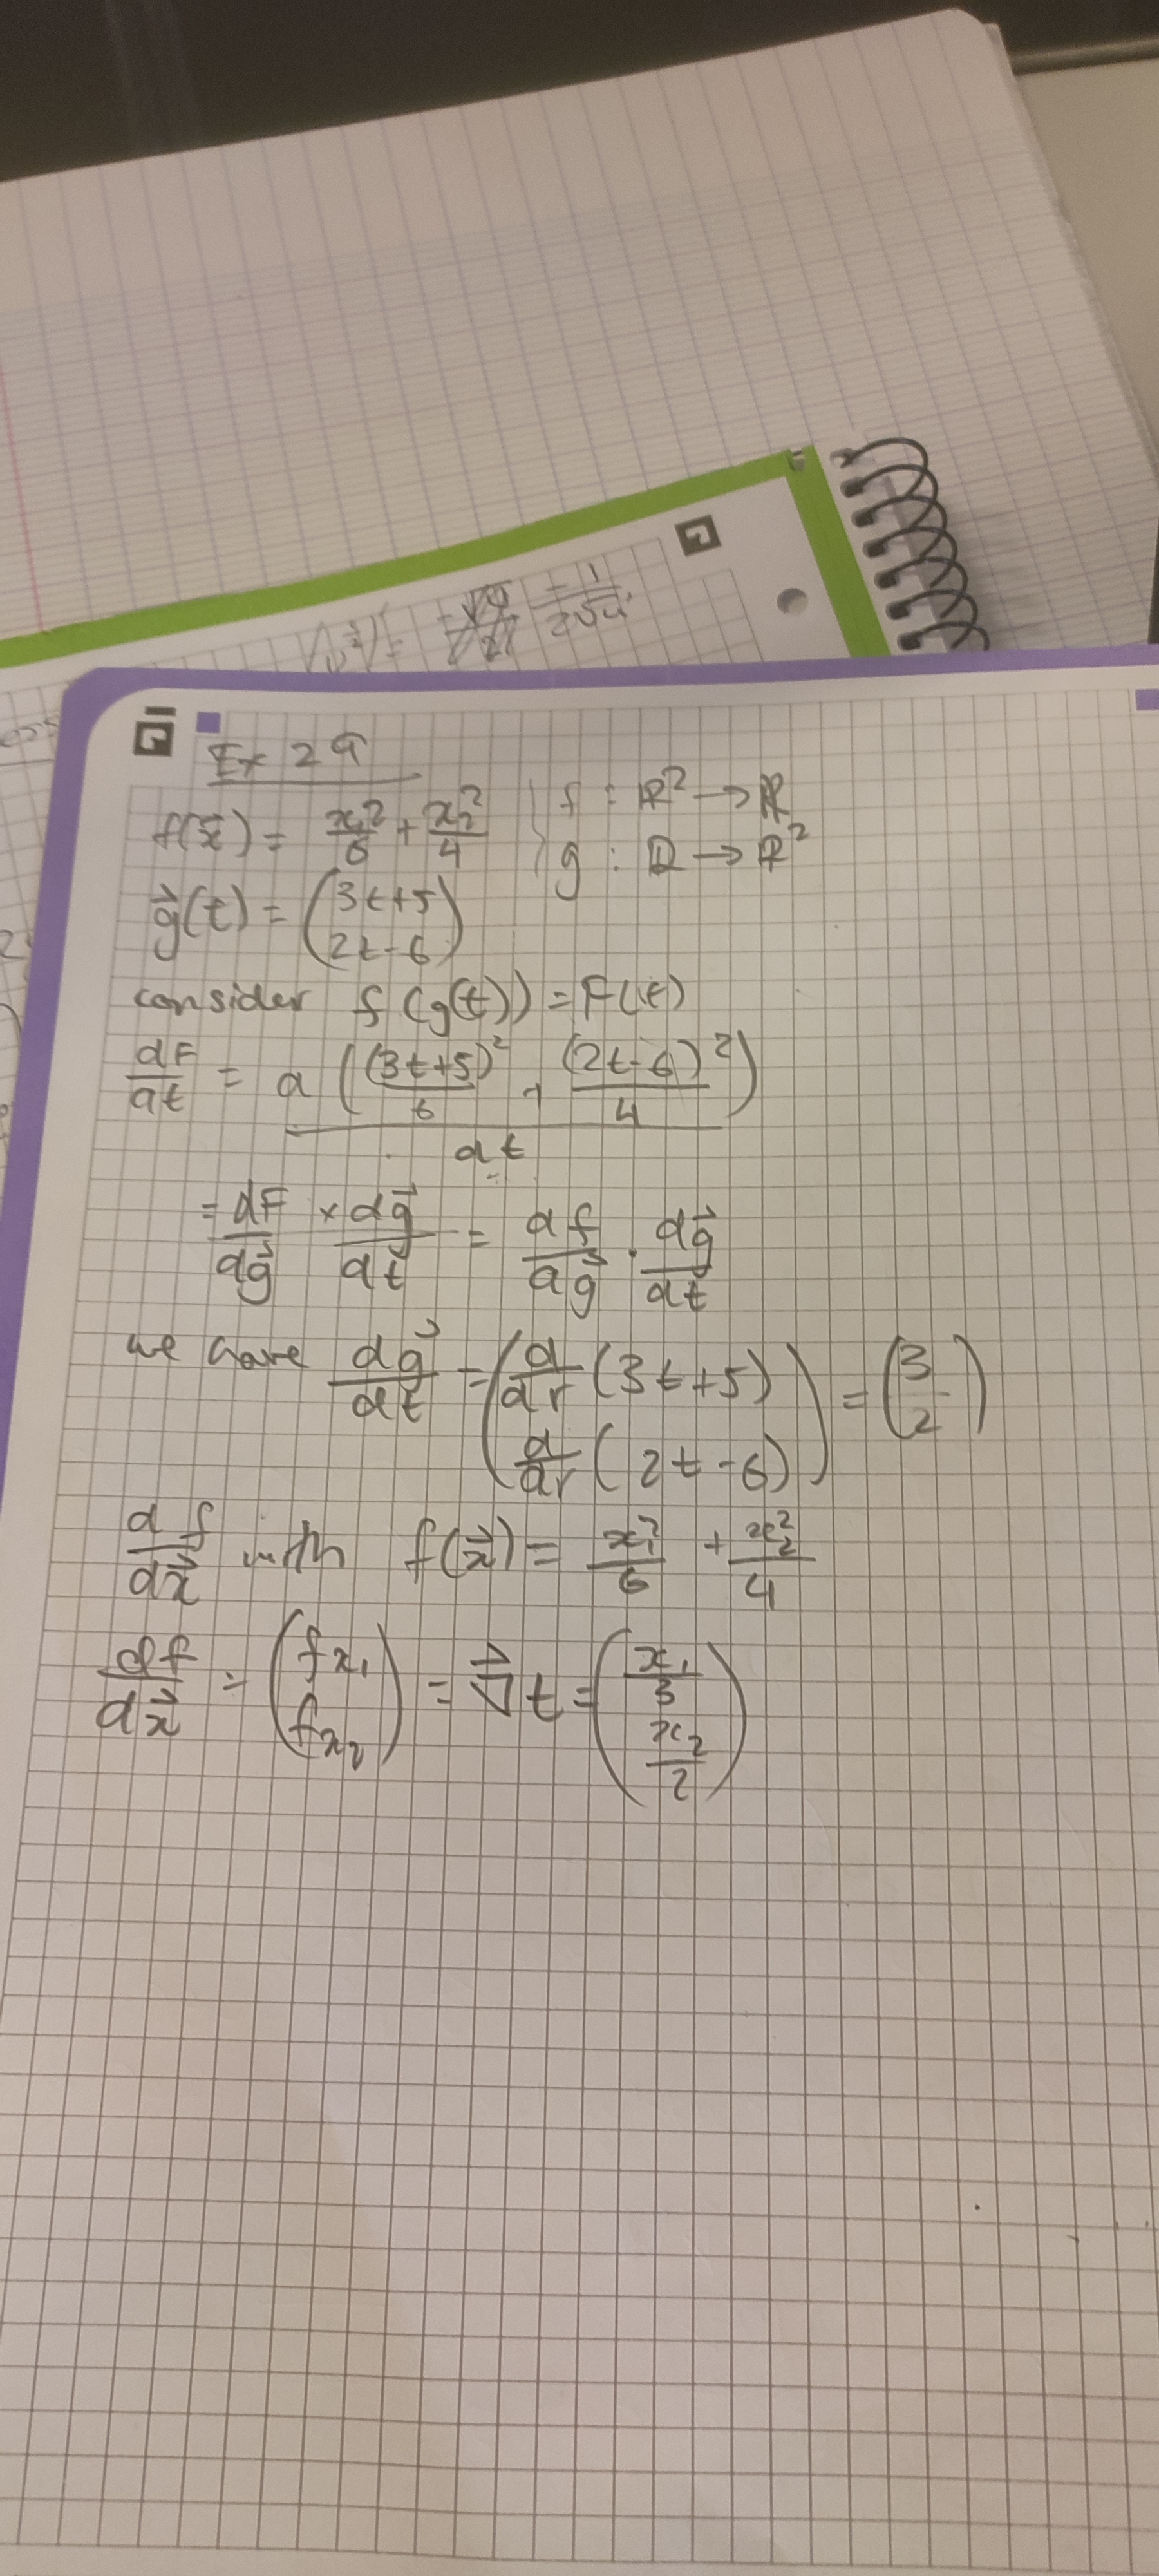 = 1/(2√u)
Ex 2a
f(x⃗) = x₁²/6 + x₂²/4 } f : ℝ² → ℝ
g : ℝ → ℝ²
g⃗(t) = (3t+5
2t-6)
consider f(g(t)) = F(t)
dF/dt = d((3t+5)²/6 + (2t-6)²/4)/dt
= dF/dg⃗ × dg⃗/dt = df/dg⃗ · dg⃗/dt
we have dg⃗/dt = (d/dr (3t+5)
d/dr (2t-6)) = (3
2)
df/dx⃗ with f(x⃗) = x₁²/6 + x₂²/4
df/dx⃗ = (fx₁
fx₂) = ∇⃗t = (x₁/3
x₂/2)